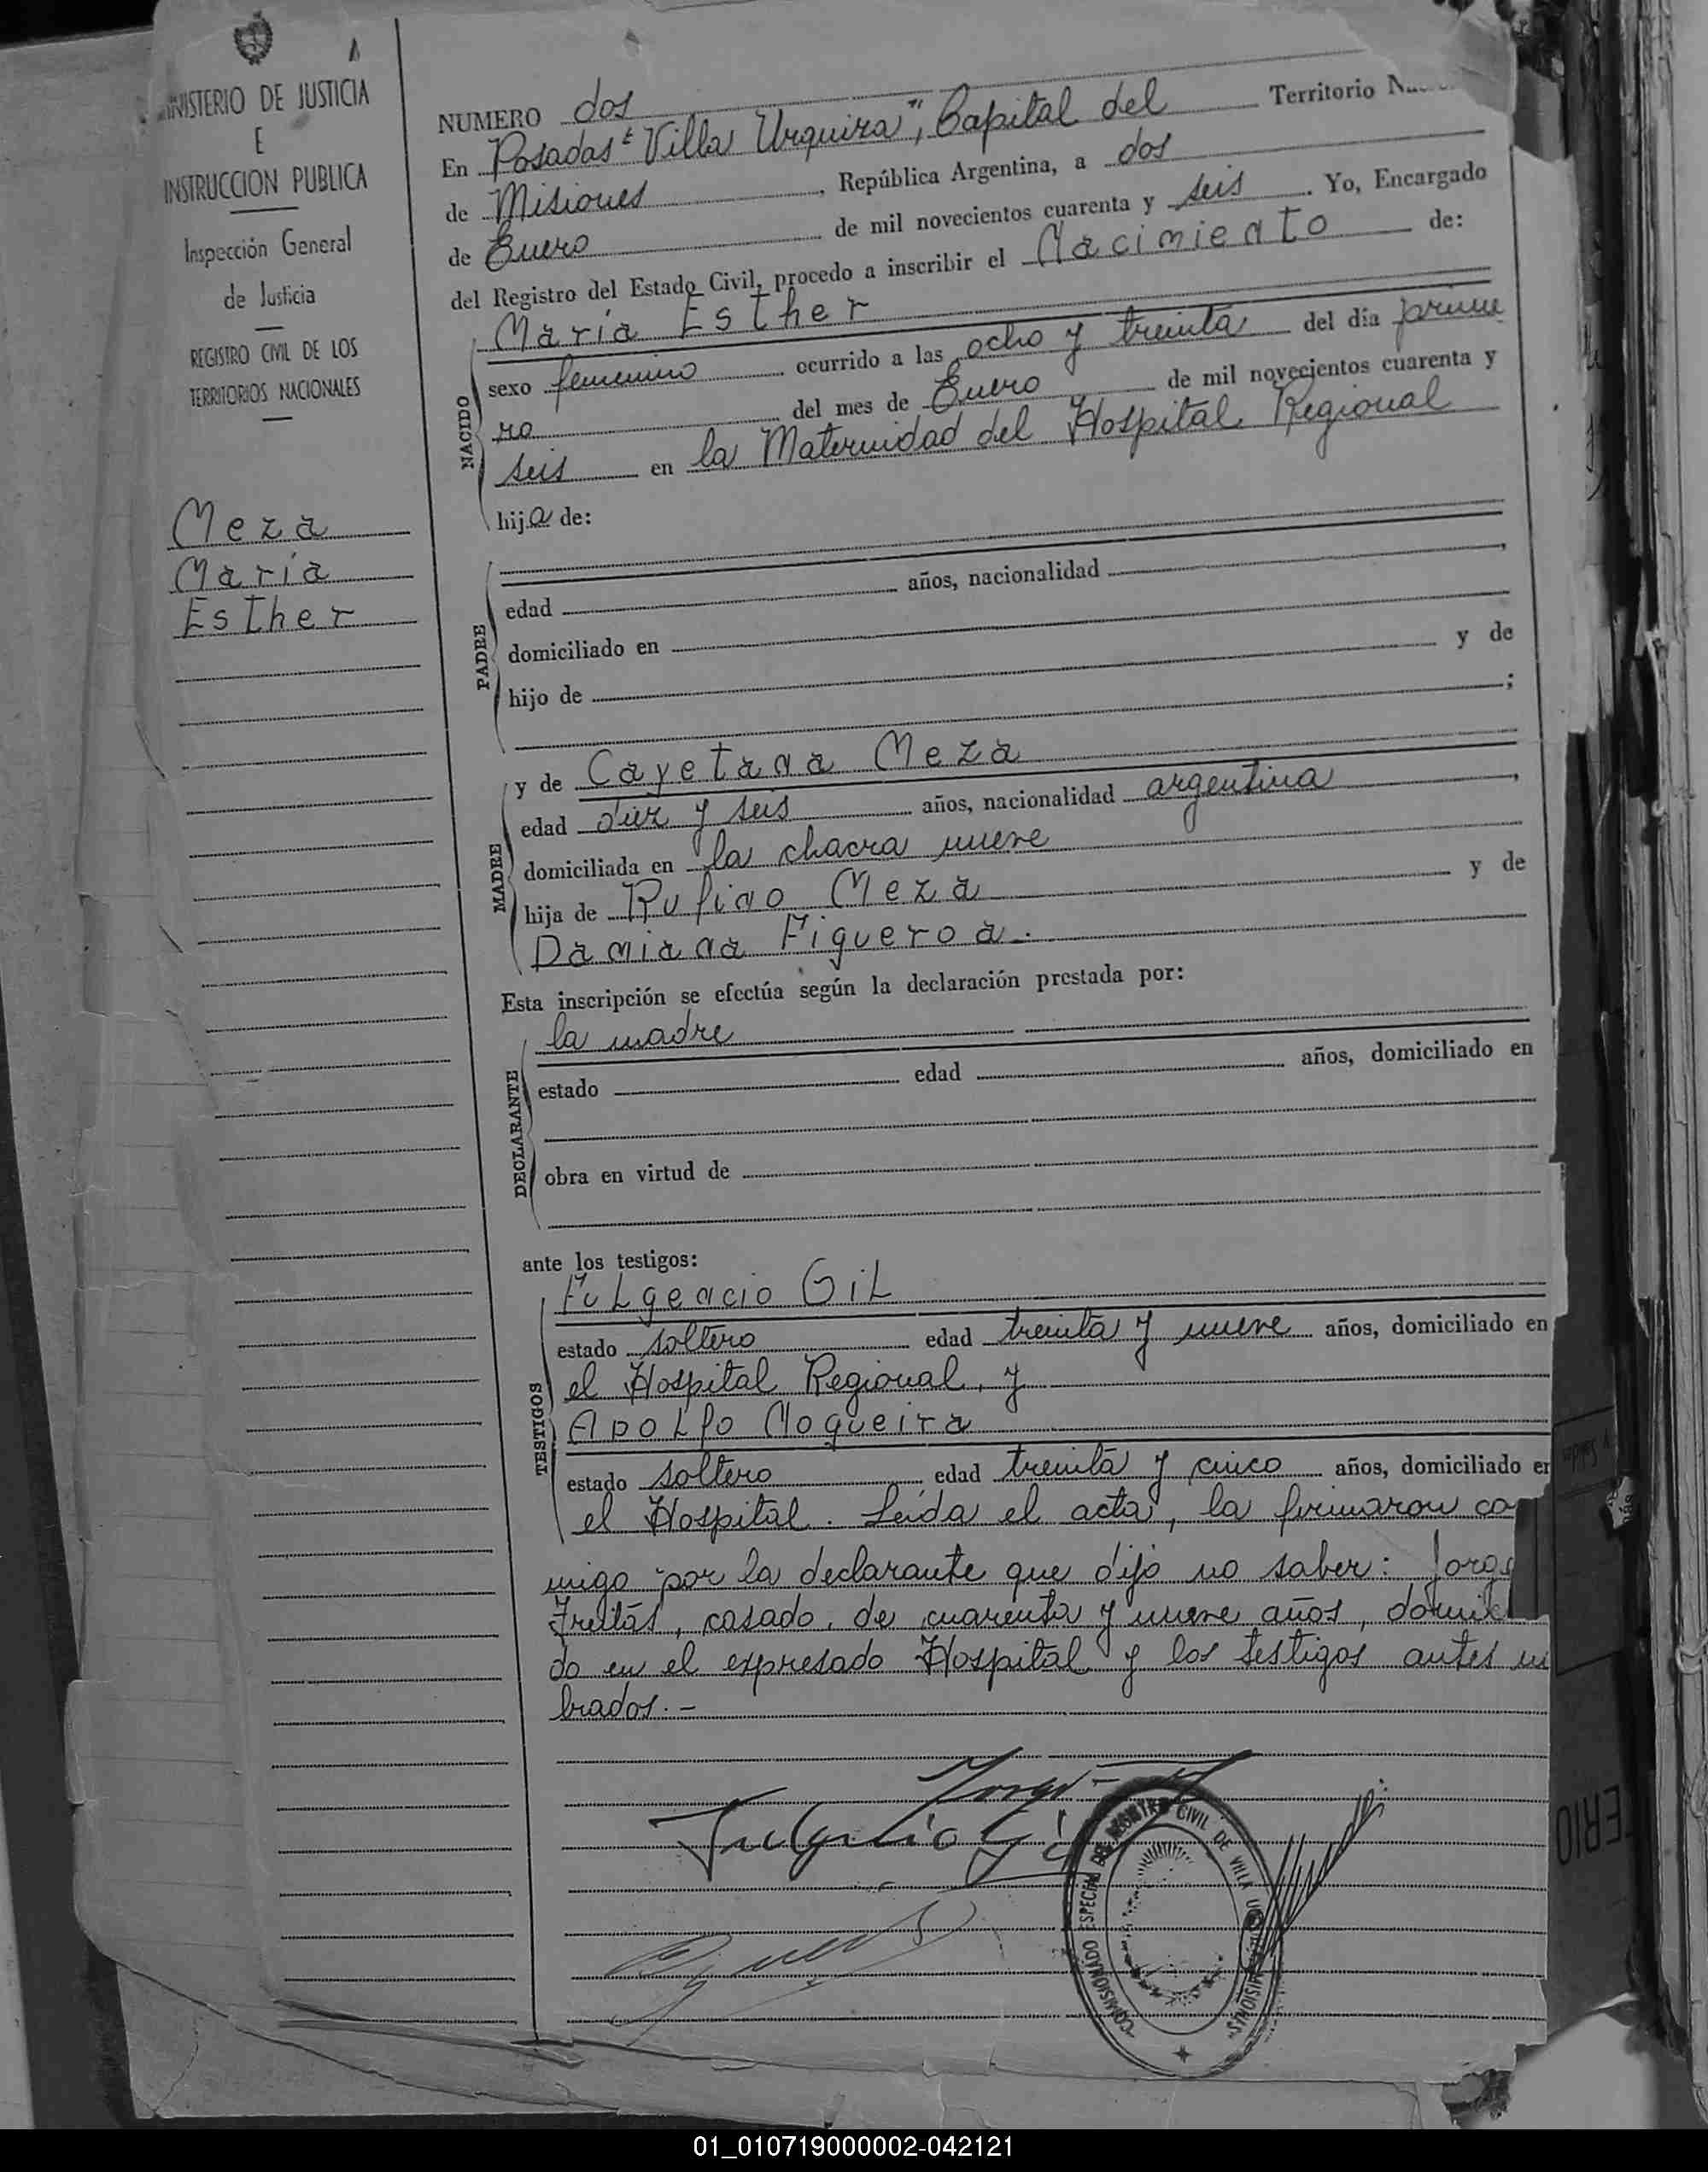 MINISTERIO DE JUSTICIA
E
INSTRUCCION PUBLICA
Inspección General
de Justicia
REGISTRO CIVIL DE LOS
TERRITORIOS NACIONALES
Meza
María
Esther
NUMERO dos
En Posadas "Villa Urquiza", Capital del Territorio
de Misiones, República Argentina, a dos
de Enero de mil novecientos cuarenta y seis. Yo, Encargado
del Registro del Estado Civil, procedo a inscribir el Nacimiento de:
NACIDO
María Esther
sexo femenino ocurrido a las ocho y treinta del día prime
ro del mes de Enero de mil novecientos cuarenta y
seis en la Maternidad del Hospital Regional
hija de:
PADRE
edad años, nacionalidad ,
domiciliado en
hijo de y de
;
MADRE
y de Cayetana Meza
edad diez y seis años, nacionalidad argentina ,
domiciliada en la chacra nueve
hija de Rufino Meza y de
Damiana Figueroa.
Esta inscripción se efectúa según la declaración prestada por:
DECLARANTE
la madre
estado edad años, domiciliado en
obra en virtud de
ante los testigos:
TESTIGOS
Fulgencio Gil
estado soltero edad treinta y nueve años, domiciliado en
el Hospital Regional, y
Adolfo Nogueira
estado soltero edad treinta y cinco años, domiciliado en
el Hospital. Leída el acta, la firmaron co
migo por la declarante que dijo no saber: Jorge
Freitas, casado, de cuarenta y nueve años, domici
do en el expresado Hospital y los testigos antes
brados.-
Jorge
Fulgencio Gil
COMISIONADO ESPECIAL DEL REGISTRO CIVIL DE VILLA URQUIZA MISIONES
01_010719000002-042121